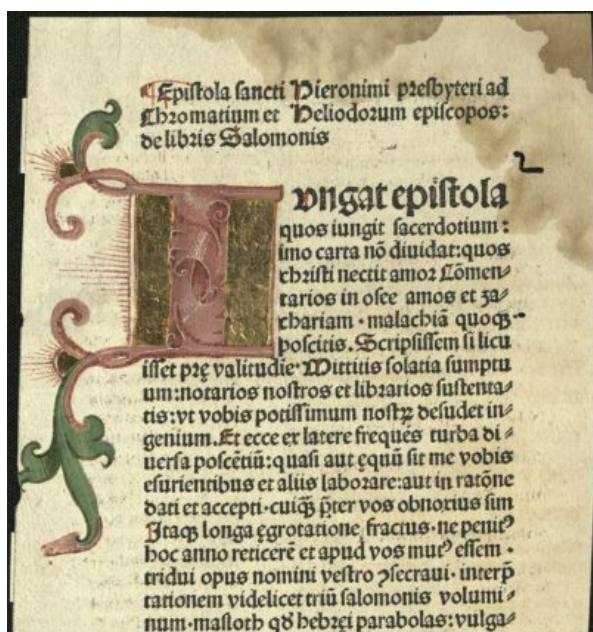 Epistola sancti Hieronimi presbyteri ad
Chromatium et Heliodorum episcopos:
de libris Salomonis
Iungat epistola
quos iungit sacerdotium :
imo carta nō diuidat: quos
christi nectit amor Cōmen⸗
tarios in osee amos et za⸗
chariam · malachiā quoqꝫ
poscitis. Scripsissem si licu
isset prę valitudie· Mittitis solatia sumptu
um: notarios nostros et librarios sustenta⸗
tis: vt vobis potissimum nostꝝ desudet in⸗
genium. Et ecce ex latere frequēs turba di⸗
uersa poscētiū: quasi aut ęquū sit me vobis
esurientibus et aliis laborare: aut in ratōne
dati et accepti· cuiqꝫ p̄ter vos obnoxius sim
Itaqꝫ longa ęgrotatione fractus· ne penitꝰ
hoc anno reticerē et apud vos mutꝰ essem ·
tridui opus nomini vestro ꝯsecraui· interp̄
tationem videlicet triū salomonis volumi⸗
num· masloth qđ hebręi parabolas: vulga⸗